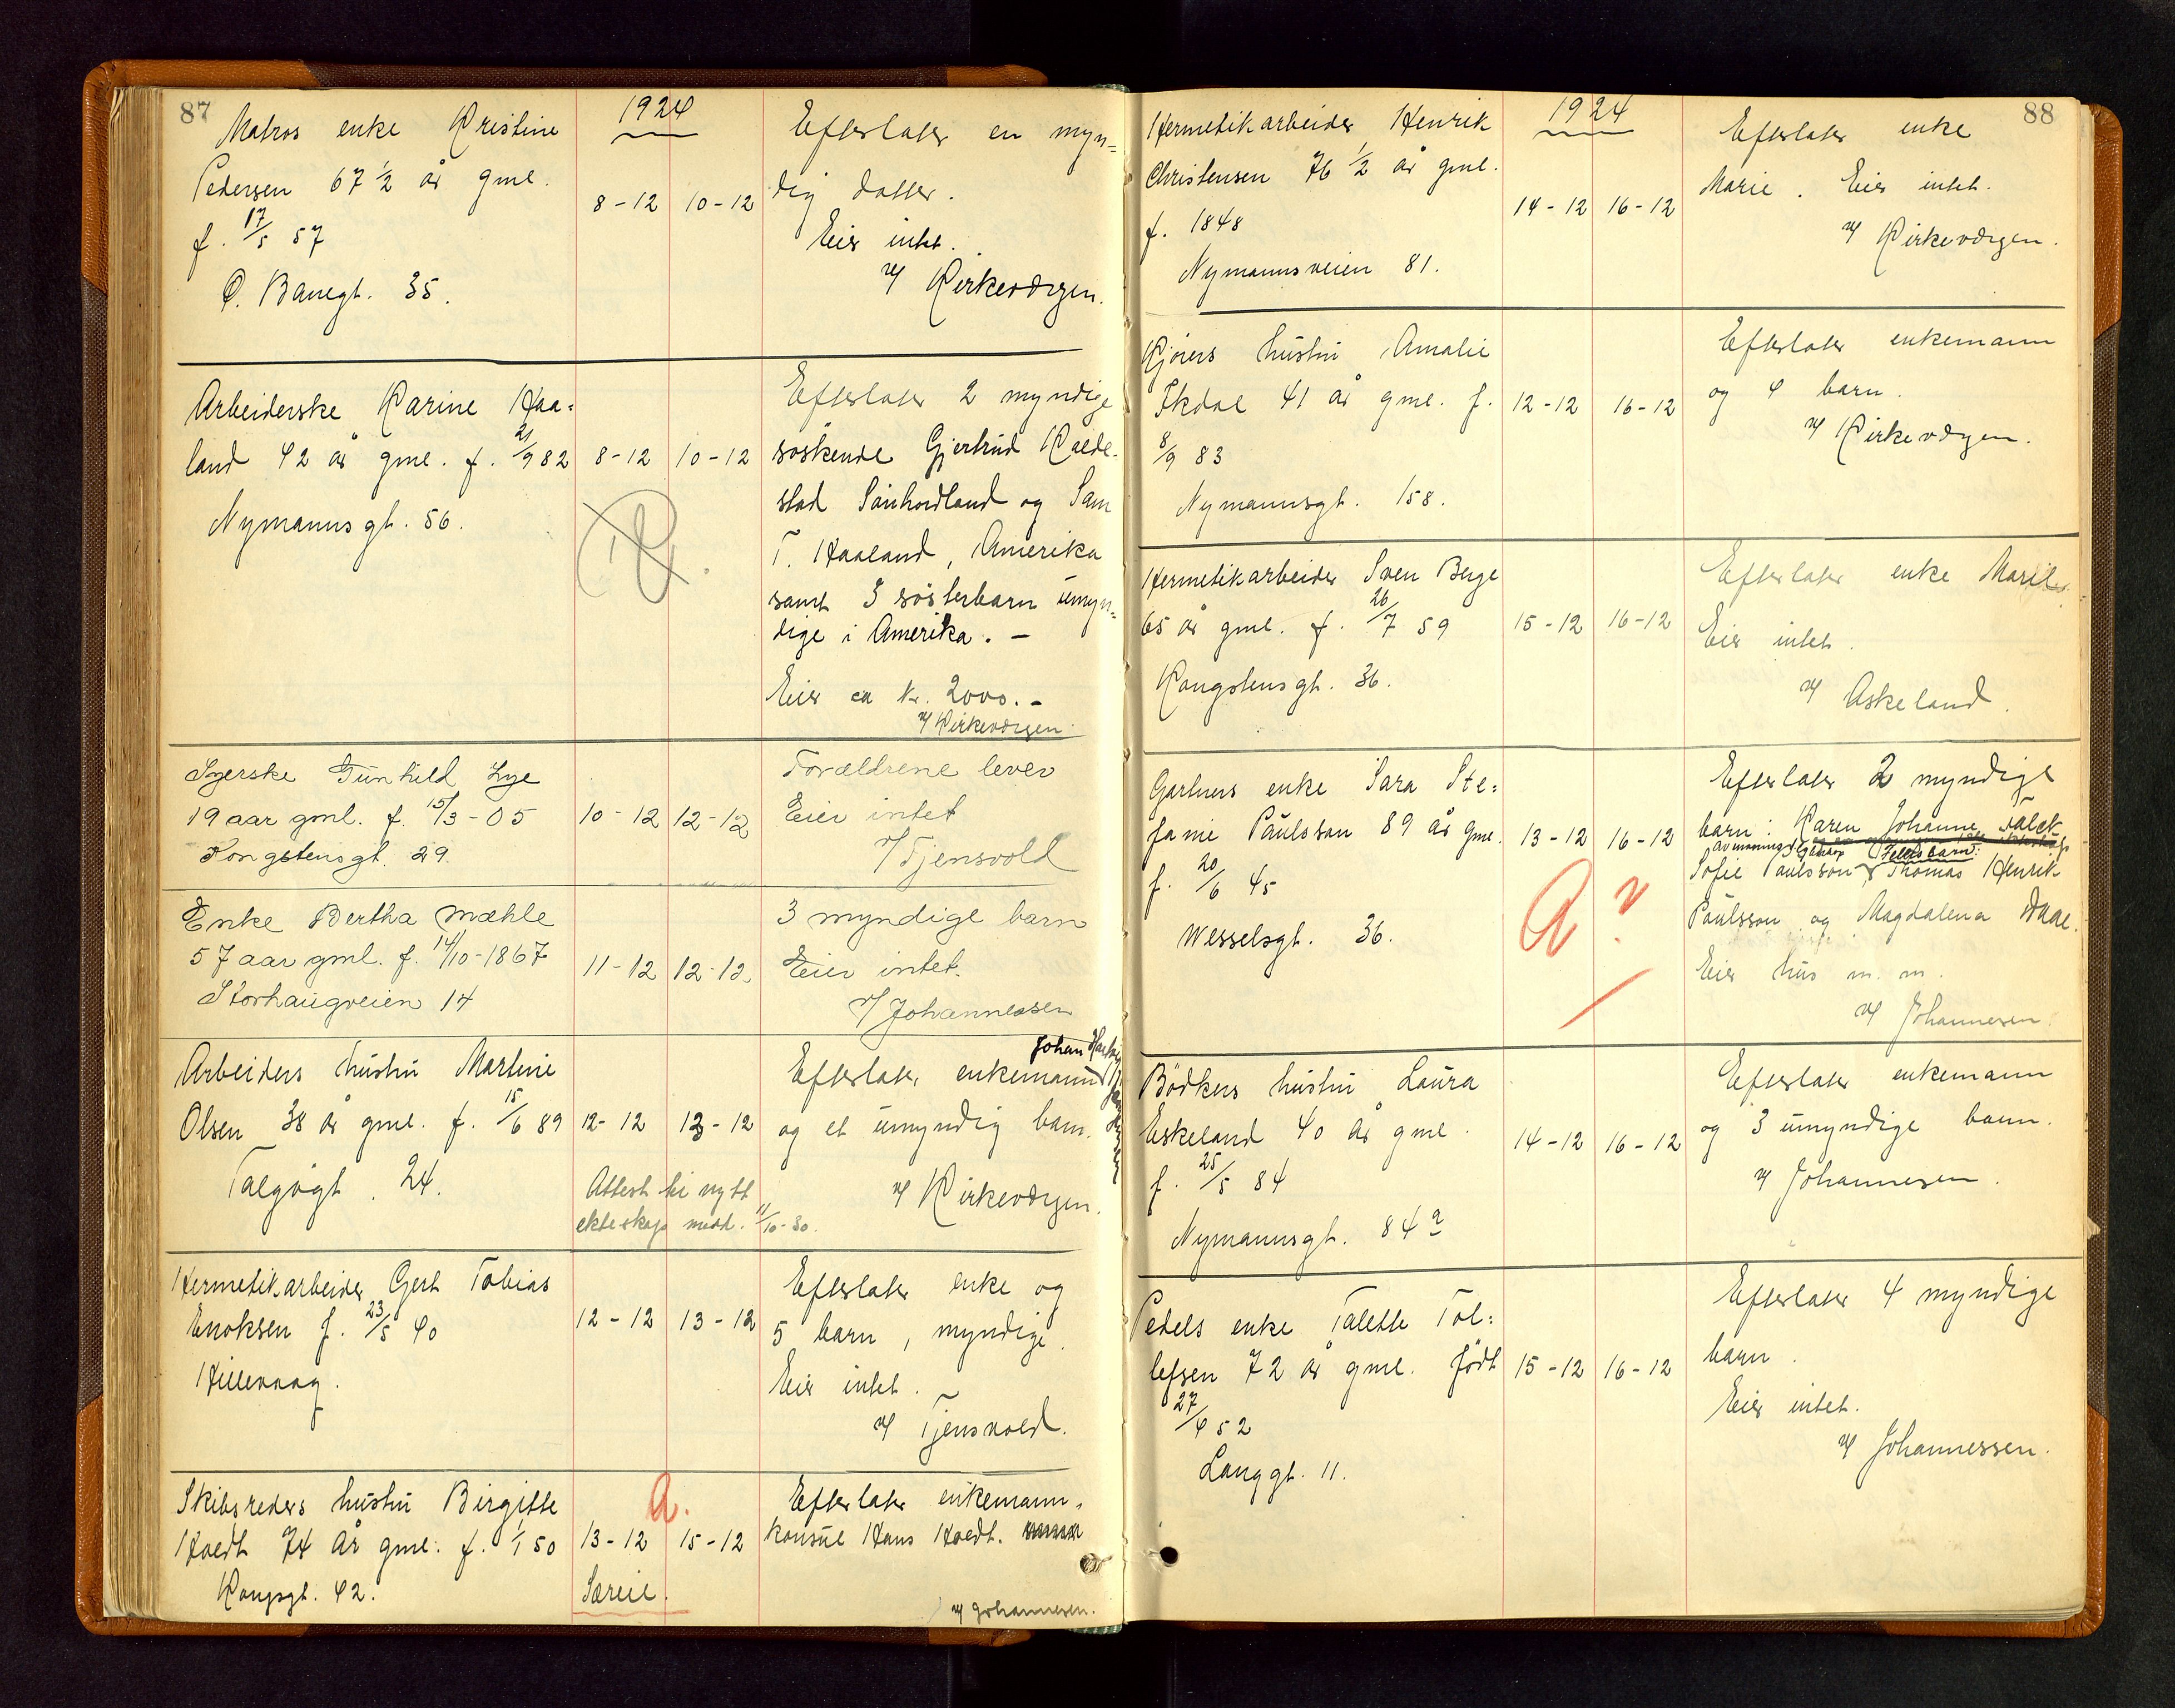 87
1924
Matros enke Kristine
Pedersen 67 1/2 år gml.
f. 17/5 57
Ø. Banegt. 35.
8-12 10-12
Efterlater en myn=
dig datter.
Eier intet.
v/ Kirkevergen.
Arbeiderske Karine Haa=
land 42 år gml. f. 21/9 82
Nymannsgt. 56.
8-12 10-12
Efterlater 2 myndige
søskende Gjertrud
stad Sunhordland og Sam
T. Haaland, Amerika
samt 3 søsterbarn umyn=
dige i Amerika. -
Eier ca kr. 2000.-
v/ Kirkevergen.
Syerske Gunhild Lye
19 aar gml. f. 15/3-05
Kongstensgt. 29.
10-12 12-12
Forældrene lever
Eier intet
v/ Tjensvold
Enke Bertha Mæhle
57 aar gml. f. 14/10-1867
Storhaugveien 14
11-12 12-12
3 myndige barn
Eier intet.
v/ Johannessen
Arbeiders hustru Martine
Olsen 38 år gml. f. 15/6 89
Talgøgt. 24.
12-12 13-12
Attest til nytt
ekteskap medd. 11/10-30.
Efterlater enkemann Johan
og et umyndig barn.
v/ Kirkevergen.
Hermetikarbeider Gert Tobias
Enoksen f. 23/5 40
Hillevaag.
12-12 13-12
Efterlater enke og
5 barn, myndige.
Eier intet.
v/ Tjensvold.
Skibsreders hustru Birgitte
Hoedt 74 år gml. f. 1/1 50
Kongsgt. 42.
A.
13-12 15-12
Særeie.
Efterlater enkemann,
konsul Hans Hoedt.
v/ Johannesen.
88
1924
Hermetikarbeider Henrik
Christensen 76 1/2 år gml.
f. 1848
Nymannsveien 81.
14-12 16-12
Efterlater enke
Marie. Eier intet.
v/ Kirkevergen.
Kjørers hustru Amalie
Ikdal 41 år gml. f.
8/9 83
Nymannsgt. 158.
12-12 16-12
Efterlater enkemann
og 4 barn.
v/ Kirkevergen.
Hermetikarbeider Sven Berge
65 år gml. f. 26/7 59
Kongstensgt. 36.
15-12 16-12
Efterlater enke
Eier intet.
v/ Askeland.
Gartners enke Sara Ste=
fanie Paulsson 89 år gml.
f. 20/6 45
Wesselsgt. 36.
13-12 16-12
A ?
Efterlater 2 myndige
barn: Karen Johanne Falck
Fellesbarn:
Sofie Paulsson, Thomas Henrik
Paulsson og Magdalena Daae.
Eier hus m. m.
v/ Johannesen.
Bødkers hustru Laura
Eskeland 40 år gml.
f. 25/5 84
Nymannsgt. 84 a
14-12 16-12
Efterlater enkemann
og 3 umyndige barn.
v/ Johannesen.
Pedels enke Talette Tol=
lefsen 72 år gml. født
27/4 52
Langgt. 11.
15-12 16-12
Efterlater 4 myndige
barn.
Eier intet.
v/ Johannessen.